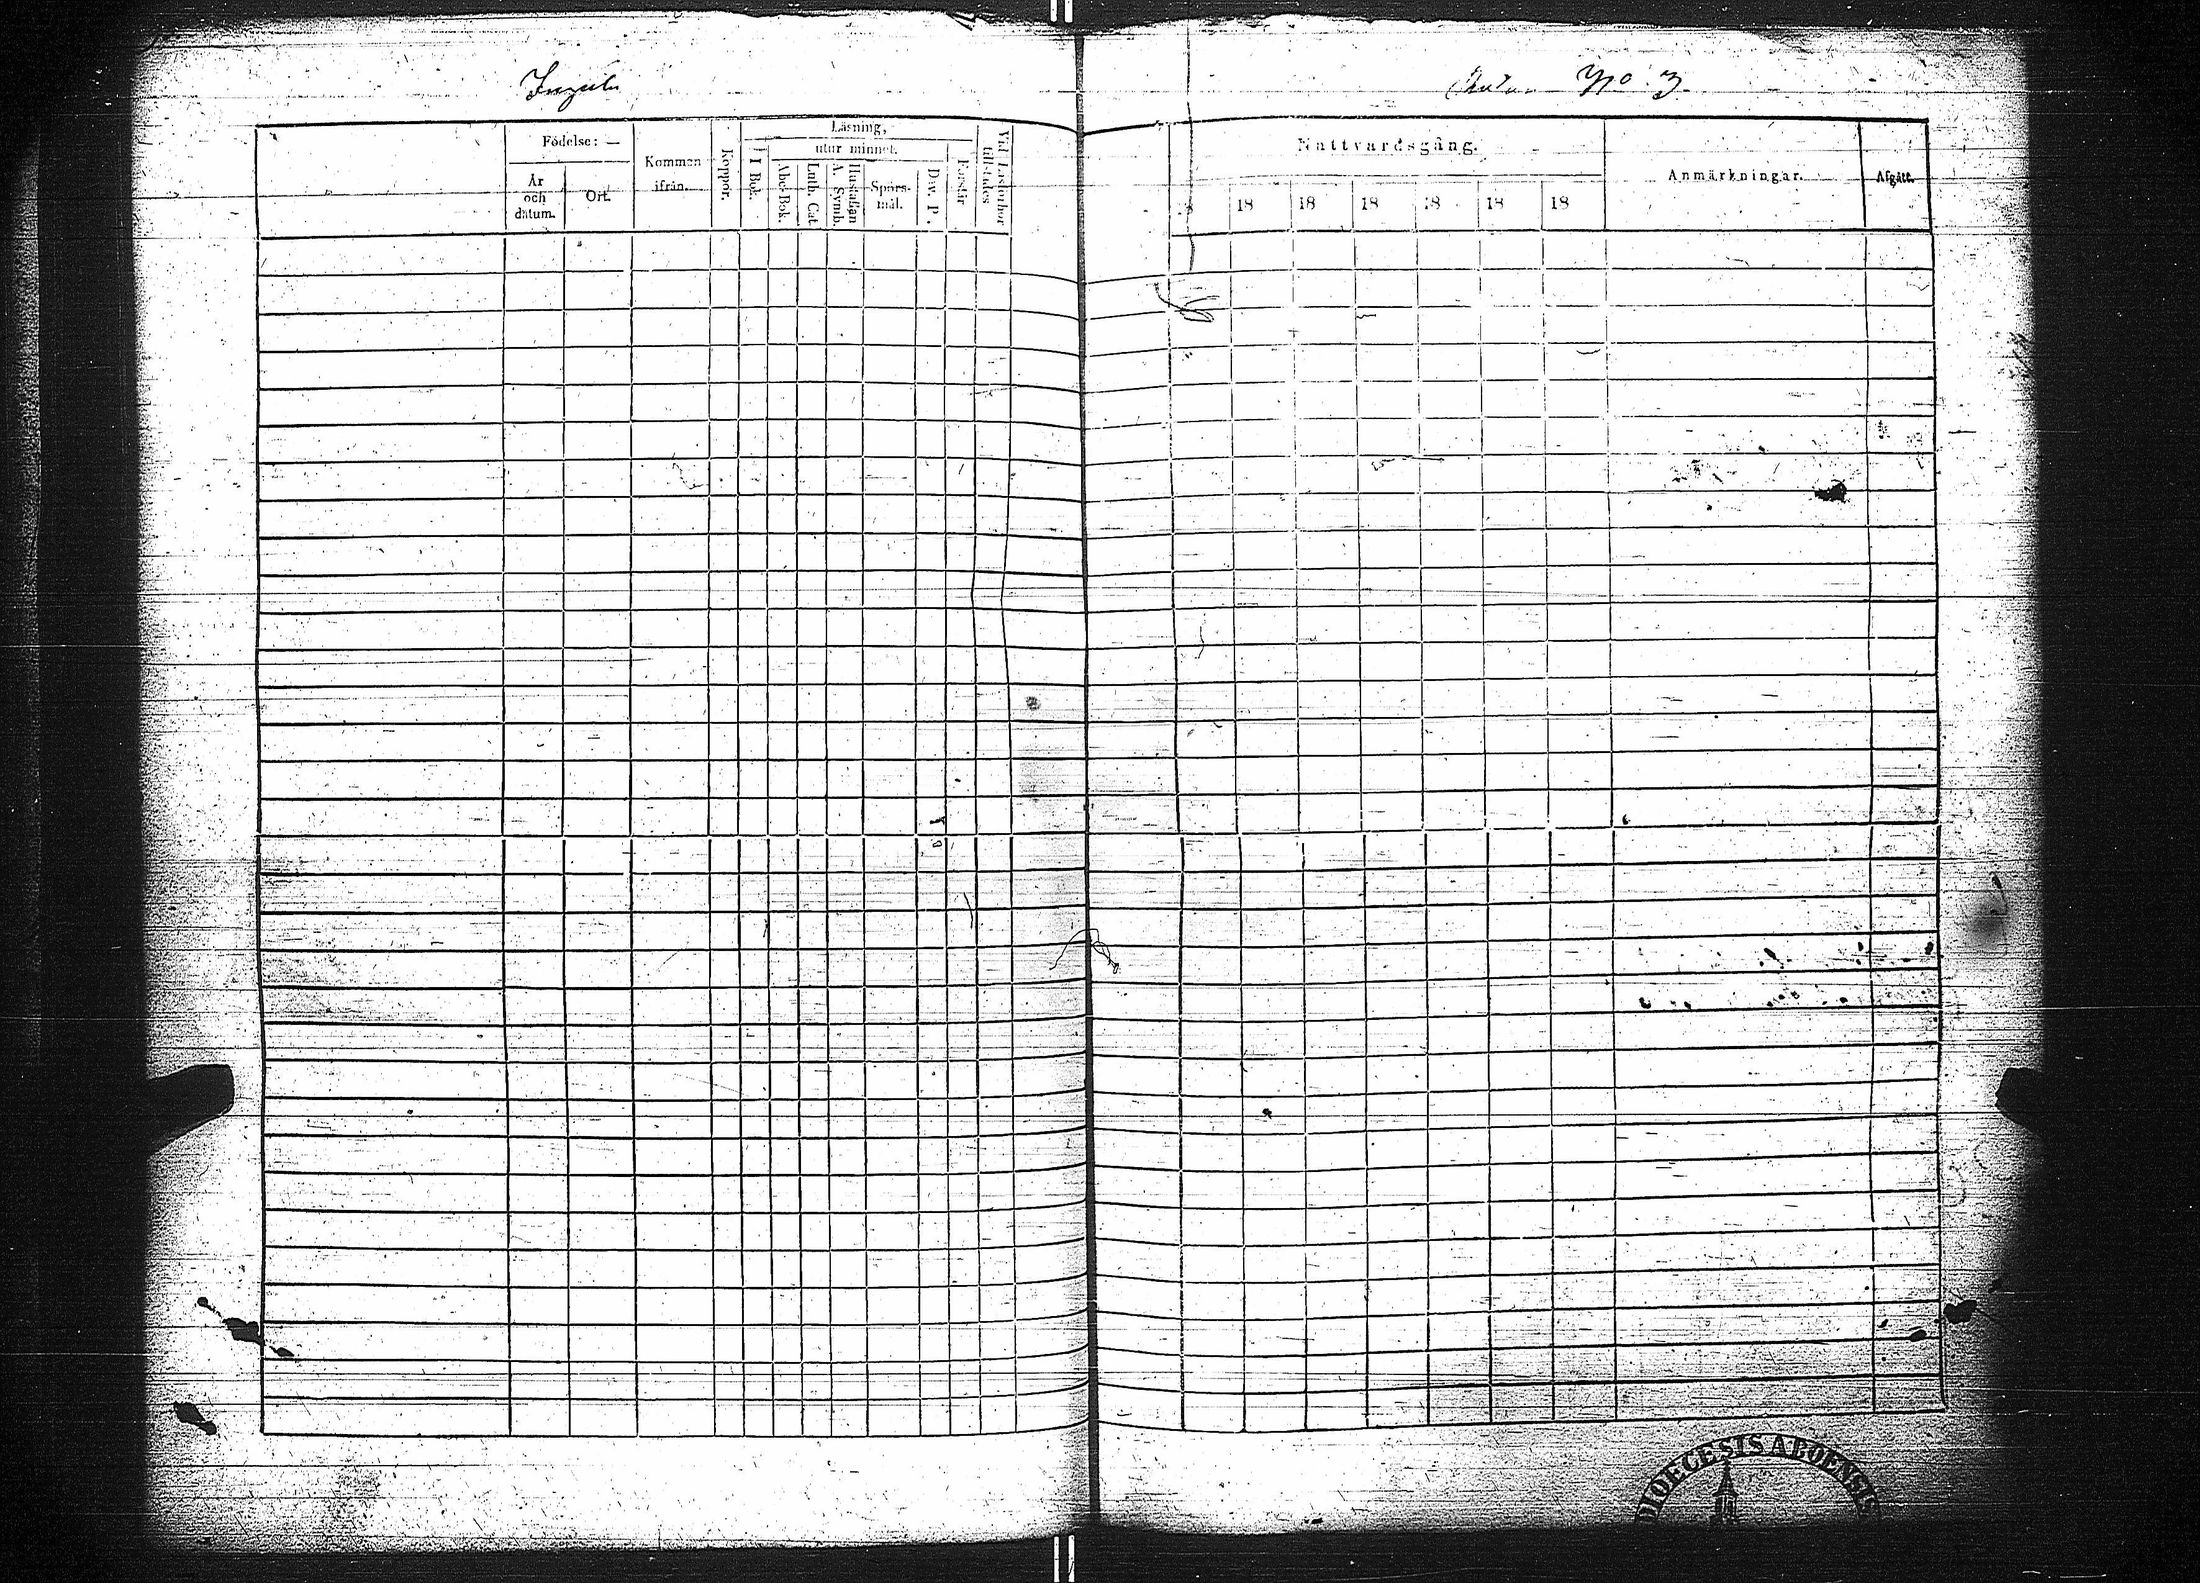 No 3.
Födelse: —
År
och
datum.
Ort.
Kommen
ifrån.
Koppor.
Läsning,
utur minnet.
I Bok.
Abc-Bok.
Luth. Cat.
Hustaflan
A. Symb.
Spörs-
mål.
Dav. P.
Förstår
Vid Läsförhör
tillstädes
Nattvardsgång.
18
18
18
18
18
18
Anmärkningar.
Afgått.
DIOECESIS ABOENSIS